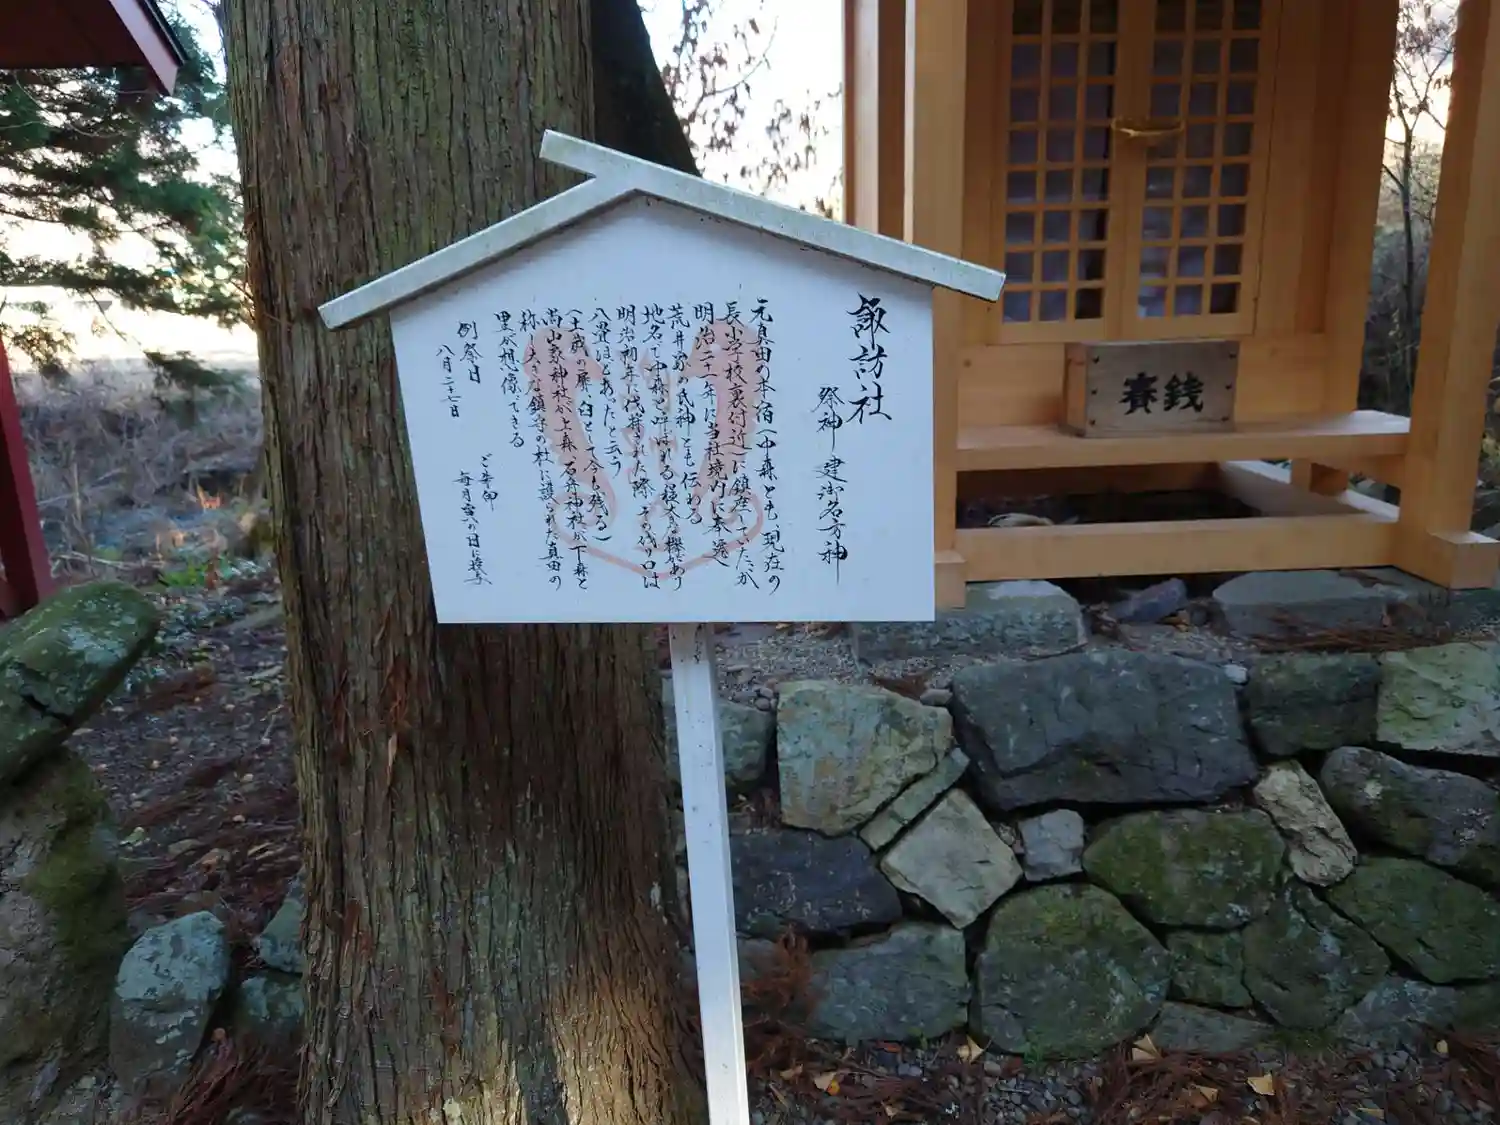 諏訪社
祭神 建御名方神
元真田の本宿(中森とも、現在の
長小学校裏付近)に鎮座してたが
明治二十一年に当社境内に奉遷
荒井家の氏神とも伝める
地名を中森と呼ばれる程大な欅があり
明治初年に伐採された際、その伐り口は
八畳ほどあったと云う
(土蔵の扉、臼として今も残る)
当山家神社が上森、石舟神社が下森と
称し大きな鎮守の杜に護られた真田の
里が想像できる
例祭日
八月二十七日
ご朱印
毎月 の日に授与
賽銭